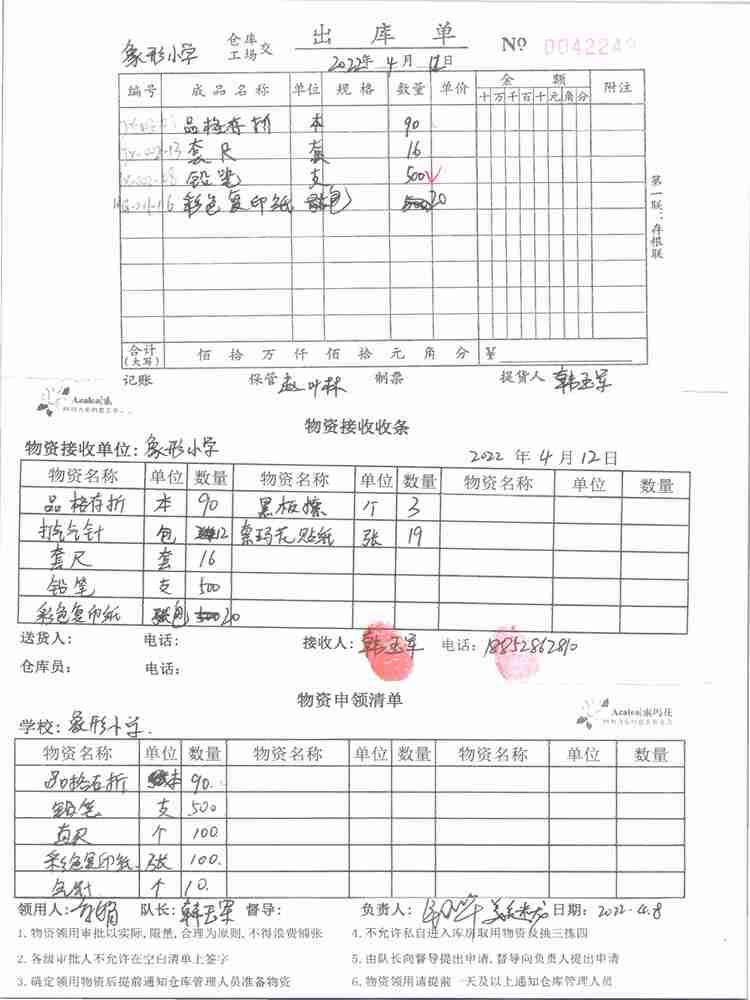 象形小学 仓库 工场 交 出库单 Nº 004224
2022年 4月 12日
编号 成品名称 单位 规格 数量 单价 金额 附注
十 万 千 百 十 元 角 分
品格存折 本 90
套尺 套 16
铅笔 支 500
彩色复印纸 包 20
第一联：存根联
合计（大写） 佰 拾 万 仟 佰 拾 元 角 分 ¥
记账 保管 赵叶林 制票 提货人 韩玉军
Azalea
物资接收收条
物资接收单位：象形小学 2022 年 4 月 12 日
物资名称 单位 数量 物资名称 单位 数量 物资名称 单位 数量
品格存折 本 90 黑板擦 个 3
打气针 包 12 索玛花贴纸 张 19
套尺 套 16
铅笔 支 500
彩色复印纸 包 20
送货人： 电话： 接收人：韩玉军 电话：18852862810
仓库员： 电话：
物资申领清单
Azalea|索玛花
学校：象形小学.
物资名称 单位 数量 物资名称 单位 数量 物资名称 单位 数量
品格存折 本 90.
铅笔 支 500
直尺 个 100
彩色复印纸 张 100.
气针 个 10.
领用人： 队长：韩玉军 督导： 负责人： 日期：2022.4.8
1. 物资领用审批以实际,限量,合理为原则,不得浪费铺张
4. 不允许私自进入库房取用物资及挑三拣四
2. 各级审批人不允许在空白清单上签字
5. 由队长向督导提出申请,督导向负责人提出申请
3. 确定领用物资后提前通知仓库管理人员准备物资
6. 物资领用请提前一天及以上通知仓库管理人员